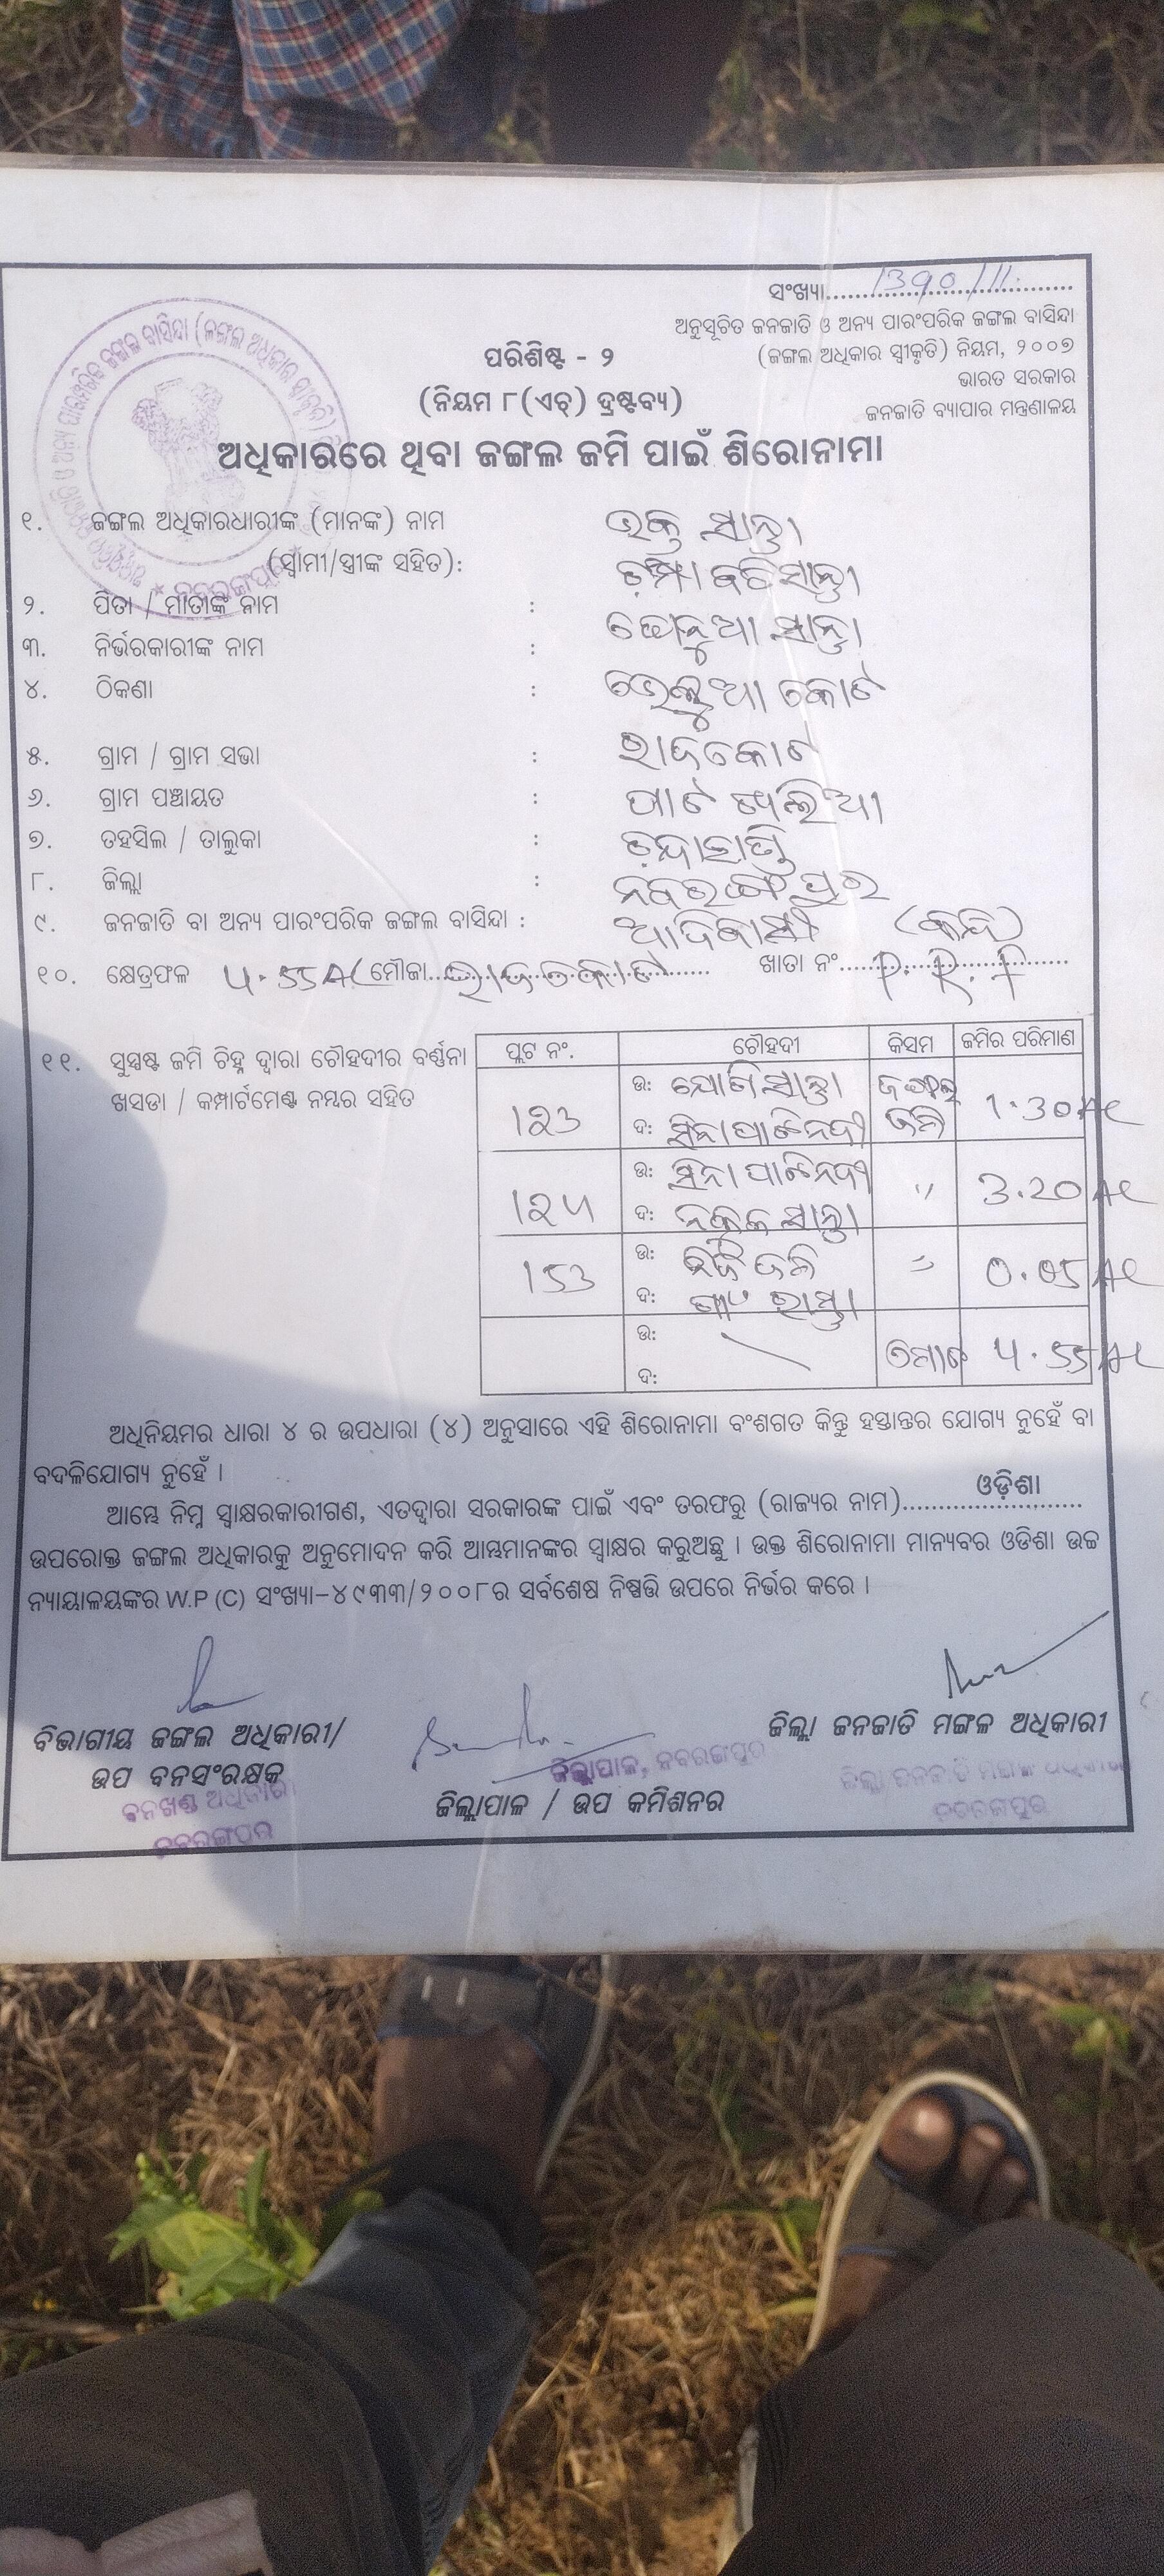 ସଂଖ୍ୟା 1390/11
ଅନୁସୂଚିତ ଜନଜାତି ଓ ଅନ୍ୟ ପାରଂପରିକ ଜଙ୍ଗଲ ବାସିନ୍ଦା
(ଜଙ୍ଗଲ ଅଧିକାର ସ୍ୱୀକୃତି) ନିୟମ, ୨୦୦୭
ଭାରତ ସରକାର
ଜନଜାତି ବ୍ୟାପାର ମନ୍ତ୍ରଣାଳୟ
ପରିଶିଷ୍ଟ - ୨
(ନିୟମ ୮(ଏଚ୍) ଦ୍ରଷ୍ଟବ୍ୟ)
ଅଧିକାରରେ ଥିବା ଜଙ୍ଗଲ ଜମି ପାଇଁ ଶିରୋନାମା
୧. ଜଙ୍ଗଲ ଅଧିକାରଧାରୀଙ୍କ (ମାନଙ୍କ) ନାମ ଭକ୍ତ ସାନ୍ତା
(ସ୍ୱାମୀ/ସ୍ତ୍ରୀଙ୍କ ସହିତ):
୨. ପିତା / ମାତାଙ୍କ ନାମ : ସାନ୍ତା
୩. ନିର୍ଭରକାରୀଙ୍କ ନାମ :
୪. ଠିକଣା :
୫. ଗ୍ରାମ / ଗ୍ରାମ ସଭା : ରାଜକୋଟ
୬. ଗ୍ରାମ ପଞ୍ଚାୟତ :
୭. ତହସିଲ / ତାଲୁକା :
୮. ଜିଲ୍ଲା : ନବରଙ୍ଗପୁର
୯. ଜନଜାତି ବା ଅନ୍ୟ ପାରଂପରିକ ଜଙ୍ଗଲ ବାସିନ୍ଦା : ଆଦିବାସୀ
୧୦. କ୍ଷେତ୍ରଫଳ 4.55 AC ମୌଜା ରାଜକୋଟ ଖାତା ନଂ P.R.F
୧୧. ସୁସ୍ପଷ୍ଟ ଜମି ଚିହ୍ନ ଦ୍ୱାରା ଚୌହଦୀର ବର୍ଣ୍ଣନା
ଖସଡା / କମ୍ପାର୍ଟମେଣ୍ଟ ନମ୍ବର ସହିତ
ପ୍ଲଟ ନଂ. ଚୌହଦୀ କିସମ ଜମିର ପରିମାଣ
123 ଉ: ସାନ୍ତା ଜଙ୍ଗଲ 1.30 AC
ଦ: ଜମି
124 ଉ: " 3.20 AC
ଦ: ନକୁଳ ସାନ୍ତା
153 ଉ: ଜମି " 0.05 AC
ଦ: ରାସ୍ତା
ଉ: ମୋଟ 4.55 AC
ଦ:
ଅଧିନିୟମର ଧାରା ୪ ର ଉପଧାରା (୪) ଅନୁସାରେ ଏହି ଶିରୋନାମା ବଂଶଗତ କିନ୍ତୁ ହସ୍ତାନ୍ତର ଯୋଗ୍ୟ ନୁହେଁ ବା
ବଦଳିଯୋଗ୍ୟ ନୁହେଁ ।
ଆମ୍ଭେ ନିମ୍ନ ସ୍ୱାକ୍ଷରକାରୀଗଣ, ଏତଦ୍ୱାରା ସରକାରଙ୍କ ପାଇଁ ଏବଂ ତରଫରୁ (ରାଜ୍ୟର ନାମ) ଓଡ଼ିଶା
ଉପରୋକ୍ତ ଜଙ୍ଗଲ ଅଧିକାରକୁ ଅନୁମୋଦନ କରି ଆମ୍ଭମାନଙ୍କର ସ୍ୱାକ୍ଷର କରୁଅଛୁ । ଉକ୍ତ ଶିରୋନାମା ମାନ୍ୟବର ଓଡିଶା ଉଚ୍ଚ
ନ୍ୟାୟାଳୟଙ୍କର W.P (C) ସଂଖ୍ୟା-୪୯୩୩/୨୦୦୮ର ସର୍ବଶେଷ ନିଷ୍ପତ୍ତି ଉପରେ ନିର୍ଭର କରେ ।
ବିଭାଗୀୟ ଜଙ୍ଗଲ ଅଧିକାରୀ/
ଉପ ବନସଂରକ୍ଷକ
ବନଖଣ୍ଡ ଅଧିକାରୀ
ନବରଙ୍ଗପୁର
ଜିଲ୍ଲାପାଳ, ନବରଙ୍ଗପୁର
ଜିଲ୍ଲାପାଳ / ଉପ କମିଶନର
ଜିଲ୍ଲା ଜନଜାତି ମଙ୍ଗଳ ଅଧିକାରୀ
ଜିଲ୍ଲା ଜନଜାତି ମଙ୍ଗଳ ଅଧିକାରୀ
ନବରଙ୍ଗପୁର